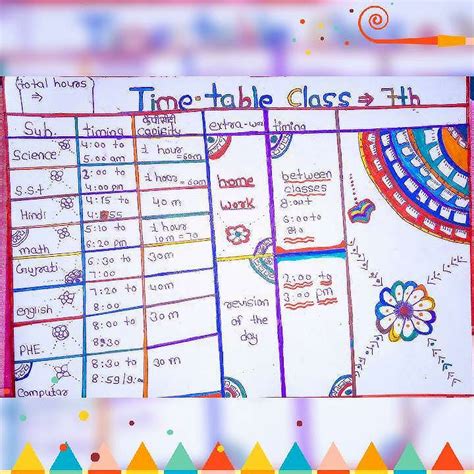 (total hours)
→
Time-table Class → 7th
Sub. timing केपेसिटी extra-wo timing
capicity
Science 4:00 to 1 hour
5:00 am =60m
S.S.t 3:00 to 1 hour
4:00 pm =60m
Hindi 4:15 to 40m
4:55
math 5:10 to 1 hour
6:20 pm 10m=70
Gujrati 6:30 to 30m
7:00
english 7:20 to 40m
8:00
PHE. 8:00 to 30m
8:30
Computar 8:30 to 30 m
8:59/9:
home
work
between
classes
8:
6:00 to
revision
of the
day
2:00 to
3:00 pm